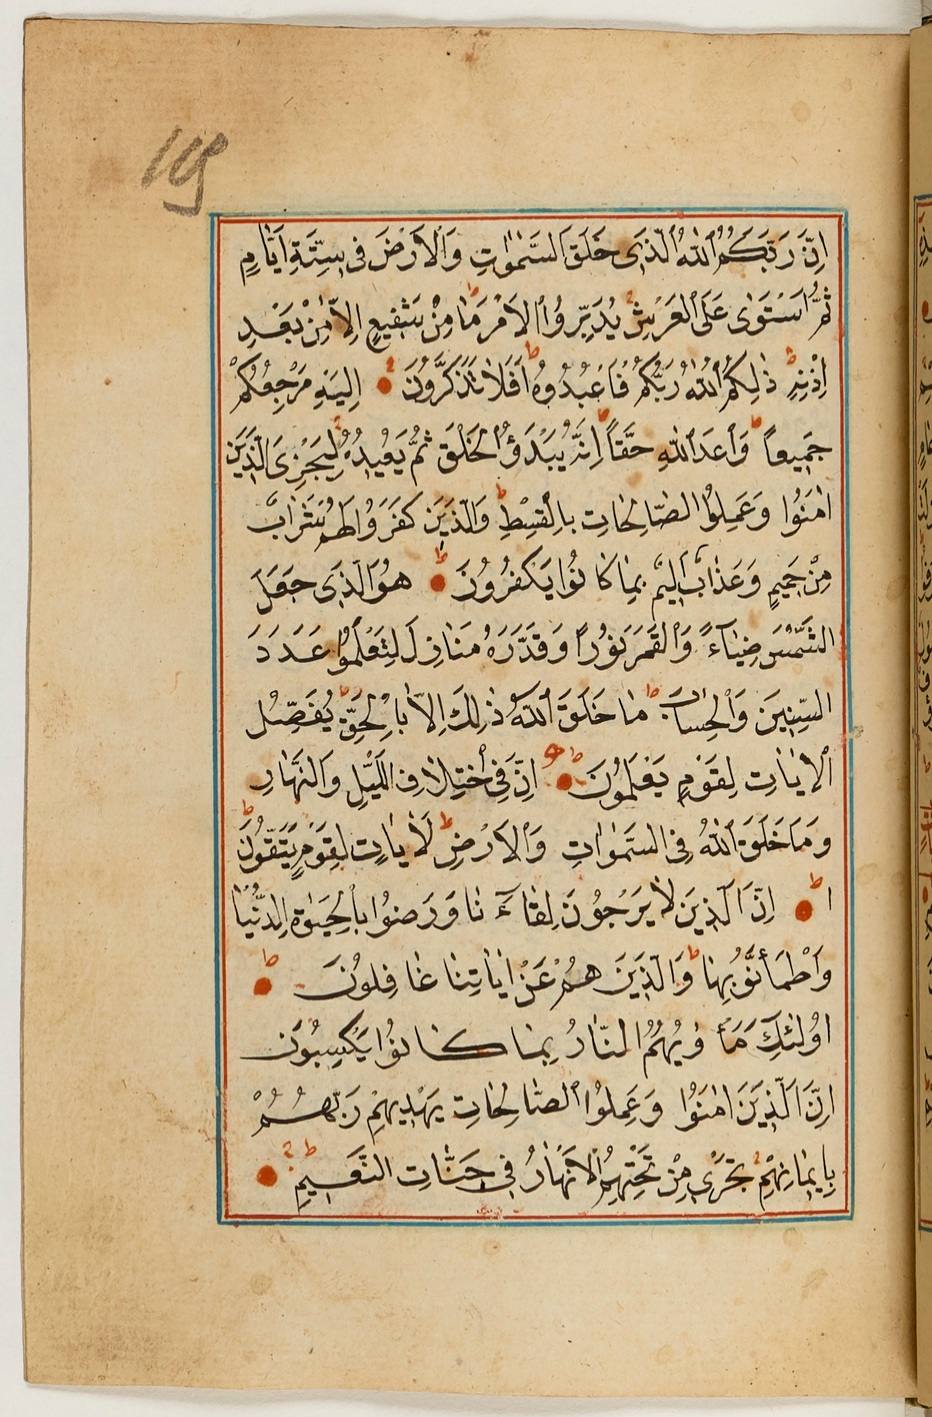 119
اِنَّ رَبَّكُمُ ٱللّٰهُ ٱلَّذٖى خَلَقَ السَّمٰوٰاتِ وَالْاَرْضَ فٖى سِتَّةِ اَيّٰامٍ
ثُمَّ اسْتَوٰى عَلَى الْعَرْشِ يُدَبِّرُ ٱلْاَمْرَ مٰا مِنْ شَفٖيعٍ اِلّاٰ مِنْ بَعْدِ
اِذْنِهٖ ذٰلِكُمُ ٱللّٰهُ رَبُّكُمْ فَاعْبُدُوهُ اَفَلاٰ تَذَكَّرُونَ اِلَيْهِ مَرْجِعُكُمْ
جَمٖيعاً وَعْدَ ٱللّٰهِ حَقّاً اِنَّهُ يَبْدَؤُ الْخَلْقَ ثُمَّ يُعٖيدُهُ لِيَجْزِىَ الَّذٖينَ
اٰمَنُوا وَعَمِلُوا الصّٰالِحٰاتِ بِالْقِسْطِ وَالَّذٖينَ كَفَرُوا لَهُمْ شَرٰابٌ
مِنْ حَمٖيمٍ وَعَذٰابٌ اَلٖيمٌ بِمٰا كٰانُوا يَكْفُرُونَ هُوَ الَّذٖى جَعَلَ
الشَّمْسَ ضِيٰآءً وَٱلْقَمَرَ نُوراً وَقَدَّرَهُ مَنٰازِلَ لِتَعْلَمُوا عَدَدَ
السِّنٖينَ وَالْحِسٰابَ مٰا خَلَقَ ٱللّٰهُ ذٰلِكَ اِلّاٰ بِالْحَقِّ يُفَصِّلُ
ٱلْاٰيٰاتِ لِقَوْمٍ يَعْلَمُونَ اِنَّ فِى اخْتِلاٰفِ الَّيْلِ وَالنَّهٰارِ
وَمٰا خَلَقَ ٱللّٰهُ فِى السَّمٰوٰاتِ وَٱلْاَرْضِ لَاٰيٰاتٍ لِقَوْمٍ يَتَّقُونَ
ا اِنَّ الَّذٖينَ لاٰ يَرْجُونَ لِقٰآءَنٰا وَرَضُوا بِٱلْحَيٰوةِ الدُّنْيٰا
وَاطْمَأَنُّوا بِهٰا وَالَّذٖينَ هُمْ عَنْ اٰيٰاتِنٰا غٰافِلُونَ
اُولٰئِكَ مَأْوٰيهُمُ النّٰارُ بِمٰا كٰانُوا يَكْسِبُونَ
اِنَّ الَّذٖينَ اٰمَنُوا وَعَمِلُوا ٱلصّٰالِحٰاتِ يَهْدٖيهِمْ رَبُّهُمْ
بِاٖيمٰانِهِمْ تَجْرٖى مِنْ تَحْتِهِمُ ٱلْاَنْهٰارُ فٖى جَنّٰاتِ النَّعٖيمِ